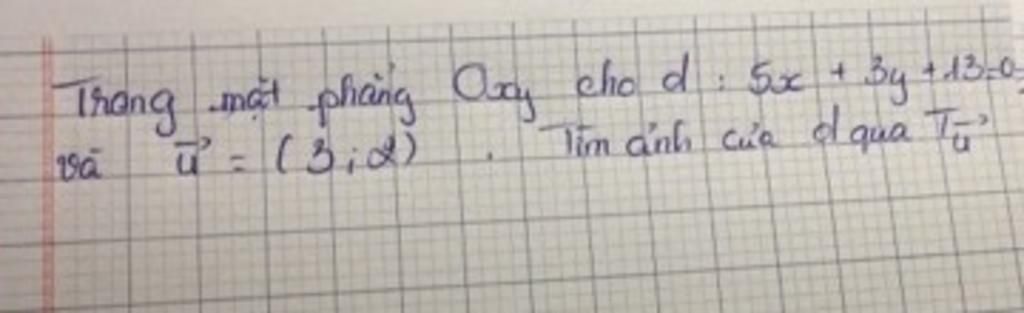 Trong mặt phẳng Oxy cho d : 5x + 3y + 13 = 0
và u⃗ = (3 ; 2) . Tìm ảnh của d qua Tu⃗